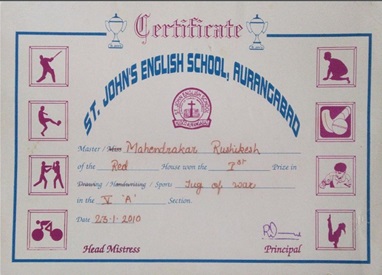 Certificate
ST. JOHN'S ENGLISH SCHOOL, AURANGABAD
Master / Miss Mahendrakar Rushikesh
of the Red House won the 1st Prize in
Drawing / Handwriting / Sports Tug of war
in the V 'A' Section.
Date 23-1-2010
Head Mistress
Principal